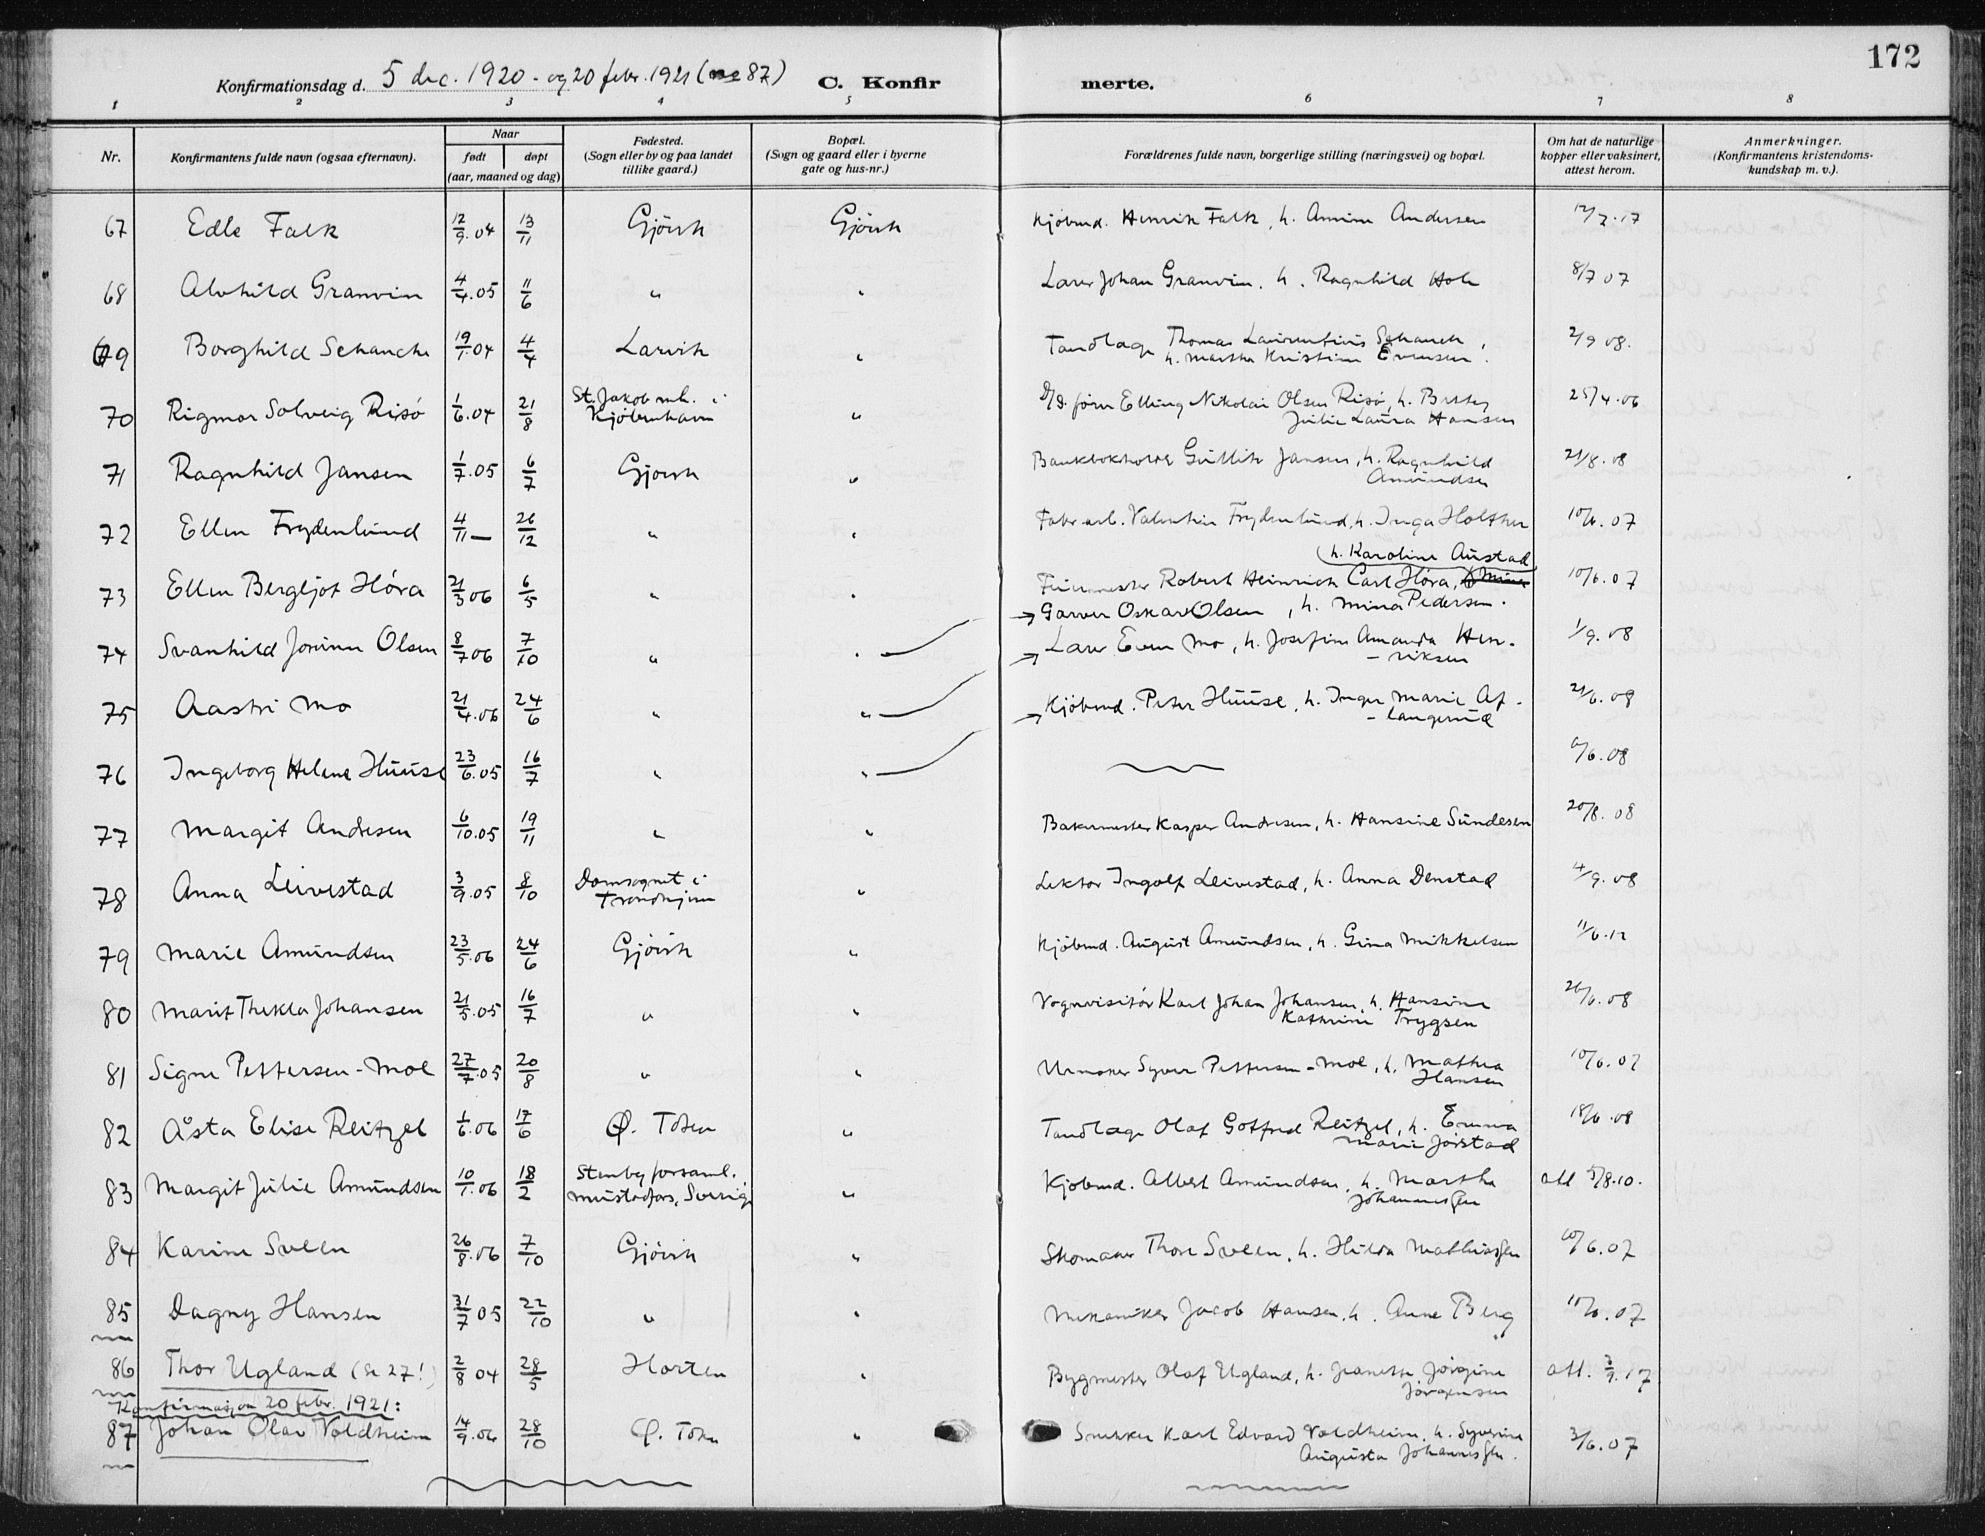 172
Konfirmationsdag d. 5 dec. 1920 - og 20 febr. 1921 (no 87) C. Konfirmerte.
1 2 3 4 5 6 7 8
Nr. Konfirmantens fulde navn (ogsaa efternavn). Naar født døpt (aar, maaned og dag) Fødested. (Sogn eller by og paa landet tillike gaard.) Bopæl. (Sogn og gaard eller i byerne gate og hus-nr.) Forældrenes fulde navn, borgerlige stilling (næringsvei) og bopæl. Om hat de naturlige kopper eller vaksinert, attest herom. Anmerkninger. (Konfirmantens kristendoms-kundskap m. v.).
67 Edle Falk 12/9.04 13/11 Gjövik Gjövik Kjöbmd. Henrik Falk, h. Amine Andersen 12/2.17
68 Alvhild Granvin 4/4.05 11/6 " " Lærer Johan Granvin, h. Ragnhild Hole 8/7 07
69 Borghild Schanche 19/1.04 4/4 Larvik " Tandlæge Thomas Laurentius Schanch, h. Martha Kristine Evensen. 2/9 08.
70 Rigmor Solveig Risö 1/6.04 21/8 St. Jakob mh. i Kjöbenhavn " förer Elling Nikolai Olsen Risö, h. Betty Julie Laura Hansen 25/4.06
71 Ragnhild Jansen 1/7.05 6/7 Gjövik " Bankbokholder Gullik Jansen, h. Ragnhild Amundsen 21/8.08
72 Ellen Frydenlund 4/11 — 26/12 " " Fabr.arb. Valentin Frydenlund, h. Inga Holther 10/6.07
73 Ellen Bergljot Höra 21/3 06 6/5 " " Feiermester Robert Heinrich Carl Höra, (h. Karoline Austad 10/6.07
74 Svanhild Jorinn Olsen 8/7 06 7/10 " " → Garver Oskar Olsen, h. Mina Pedersen. 1/9.08
75 Aastri Mo 21/4.06 24/6 " " → Lærer Even Mo, h. Josefine Amanda Hen-riksen 21/6.08
76 Ingeborg Helene Huuse 23/6.05 16/7 " " → Kjöbmd. Peter Huuse, h. Inger Marie Af-langerud /6.08
77 Margit Andresen 6/10.05 19/11 " " Bakermester Kasper Andresen, h. Hansine Sundesen 20/8.08
78 Anna Leivestad 3/9.05 8/10 Domsognet i Trondhjem " Lektor Ingolf Leivestad, h. Anna Denstad 4/9.08
79 Marie Amundsen 23/5.06 24/6 Gjövik " Kjöbmd. August Amundsen, h. Gina Mikkelsen 11/6.12
80 Marit Thekla Johansen 21/5.05 16/7 " " Vognvisitör Karl Johan Johansen, h. Hansine Kathrine Trygsen 26/6.08
81 Signe Pettersen-Moe 27/7.05 20/8 " " Urmaker Syver Pettersen-Moe, h. Mathea Hansen 10/6.07
82 Åsta Elise Reitzel 1/6.06 17/6 Ø. Toten " Tandlæge Olaf Gotfred Reitzel, h. Emma Marie Jörstad 18/6.08
83 Margit Julie Amundsen 10/1.06 18/2 Stenby forsaml. Mustadfors, Sverige " Kjöbmd. Albert Amundsen, h. Martha Johannessen att 5/8.10.
84 Karine Sveen 26/8.06 7/10 Gjövik " Skomaker Thore Sveen, h. Hilda Mathiassen 10/6.07
85 Dagny Hansen 31/7 05 22/10 " " Mekaniker Jacob Hansen, h. Anne Berg 10/6.07
86 Thor Ugland (se 27!) 2/8 04 28/5 Horten " Bygmester Olaf Ugland, h. Jeanette Jörgine Jörgensen att. 17
Konfirmasjon 20 febr. 1921:
87 Johan Olav Voldheim 14/9.06 28/10 Ø. Toten " Snekker Karl Edvard Voldheim, h. Syverine Augusta Johannessen. 3/6.07